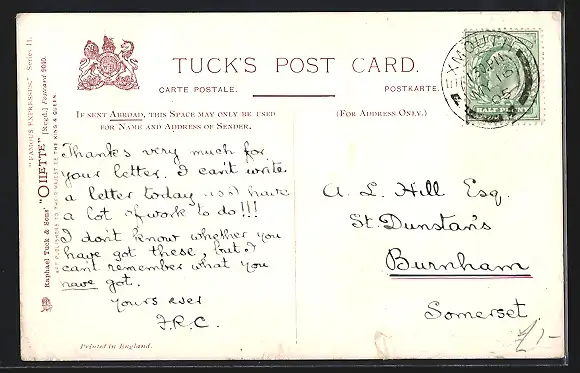 TUCK'S POST CARD.
CARTE POSTALE.
POSTKARTE.
IF SENT ABROAD, THIS SPACE MAY ONLY BE USED
FOR NAME AND ADDRESS OF SENDER.
(FOR ADDRESS ONLY.)
"FAMOUS EXPRESSES." Series II.
Raphael Tuck & Sons' "OILETTE" [Regd.] Postcard
ART PUBLISHERS TO
THE KING & QUEEN.
Thanks very much for
your letter. I can't write
a letter today as I have
a lot of work to do!!!
I don't know whether you
have got these, but I
cant remember what you
have got.
yours ever
F.R.C.
Printed in England.
EXMOUTH
HALF PENNY
A. L. Hill Esq.
St. Dunstan's
Burnham
Somerset.